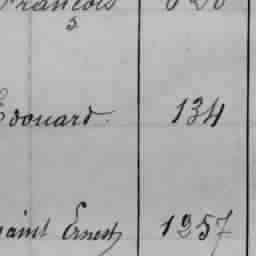 François
Edouard 134
Saint Ernest 1257